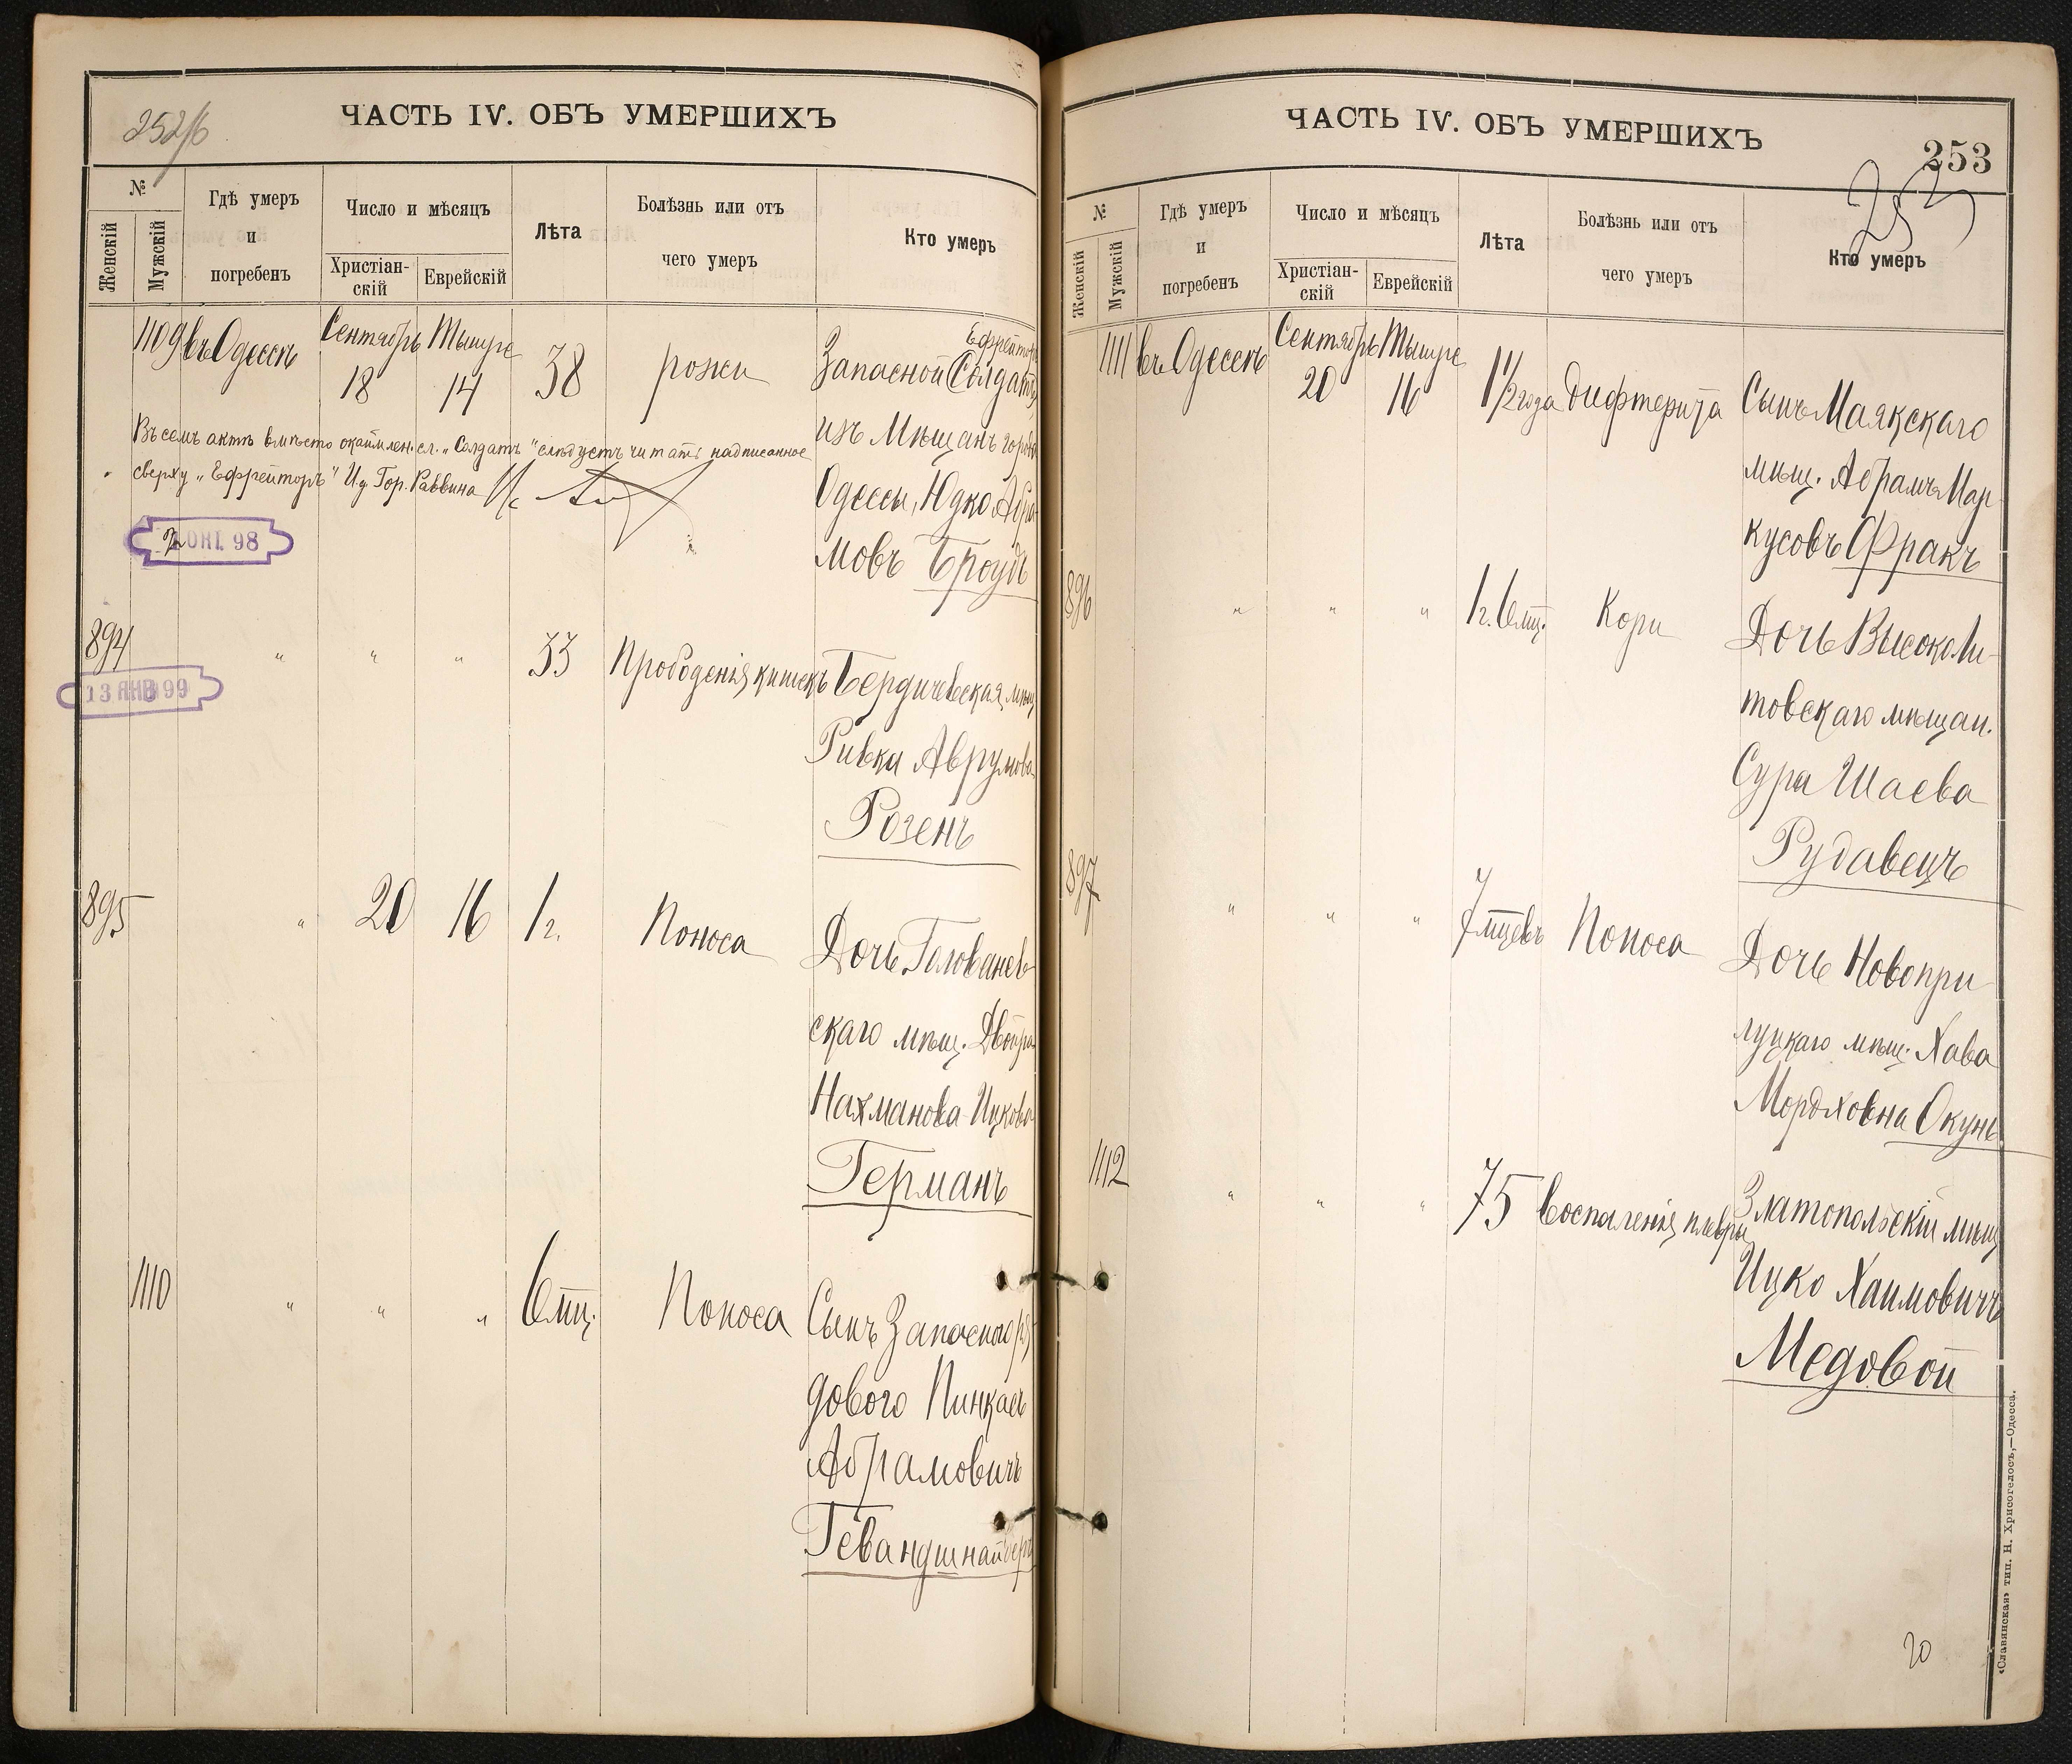 252/б
ЧАСТЬ IV. ОБЪ УМЕРШИХЪ
№
Женскій
Мужскій
Гдѣ умеръ
и
погребенъ
Число и мѣсяцъ
Христіан-
скій
Еврейскій
Лѣта
Болѣзнь или отъ
чего умеръ
Кто умеръ
1109 въ Одессѣ Сентябрь 18 Тышре 14 38 рожи
Ефрейторъ
Запасной Солдатъ,
изъ Мѣщанъ города
Одессы, Юдко Абра-
мовъ Броудъ
Въ семъ актѣ вмѣсто окаймлен. сл. „Солдатъ" слѣдуетъ читать надписанное
сверху „Ефрейторъ" И.д. Гор. Раввина
2 ОКТ. 98
894 " " " 33 Прободенія кишекъ Бердичевская мѣщ.
Ривка Аврумова
Розенъ
13 ЯНВ 99
895 " 20 16 1 г. Поноса Дочь Голованев-
скаго мѣщ. Двойра
Нахманова-Ицкова
Германъ
1110 " " " 6 мц. Поноса Сынъ Запасного ря-
дового Пинкасъ
Абрамовичъ
Гевандшнайдеръ
ЧАСТЬ IV. ОБЪ УМЕРШИХЪ
253
253
№
Женскій
Мужскій
Гдѣ умеръ
и
погребенъ
Число и мѣсяцъ
Христіан-
скій
Еврейскій
Лѣта
Болѣзнь или отъ
чего умеръ
Кто умеръ
1111 въ Одессѣ Сентябрь 20 Тышре 16 1 1/2 года Дифтерита Сынъ Маякскаго
мѣщ. Абрамъ Мар-
кусовъ Фракъ
896 " " " 1 г. 6 мц. Кори Дочь Высоколи-
товскаго мѣщан.
Сура Шаева
Рудавецъ
897 " " " 7 мцевъ Поноса Дочь Новопри-
луцкаго мѣщ. Хава
Мордховна Окунь
1112 " " " 75 Воспаленія плевры Златопольскій мѣщ.
Ицко Хаимовичъ
Медовой
20
«Славянская» тип. Н. Хрисогелосъ,—Одесса.